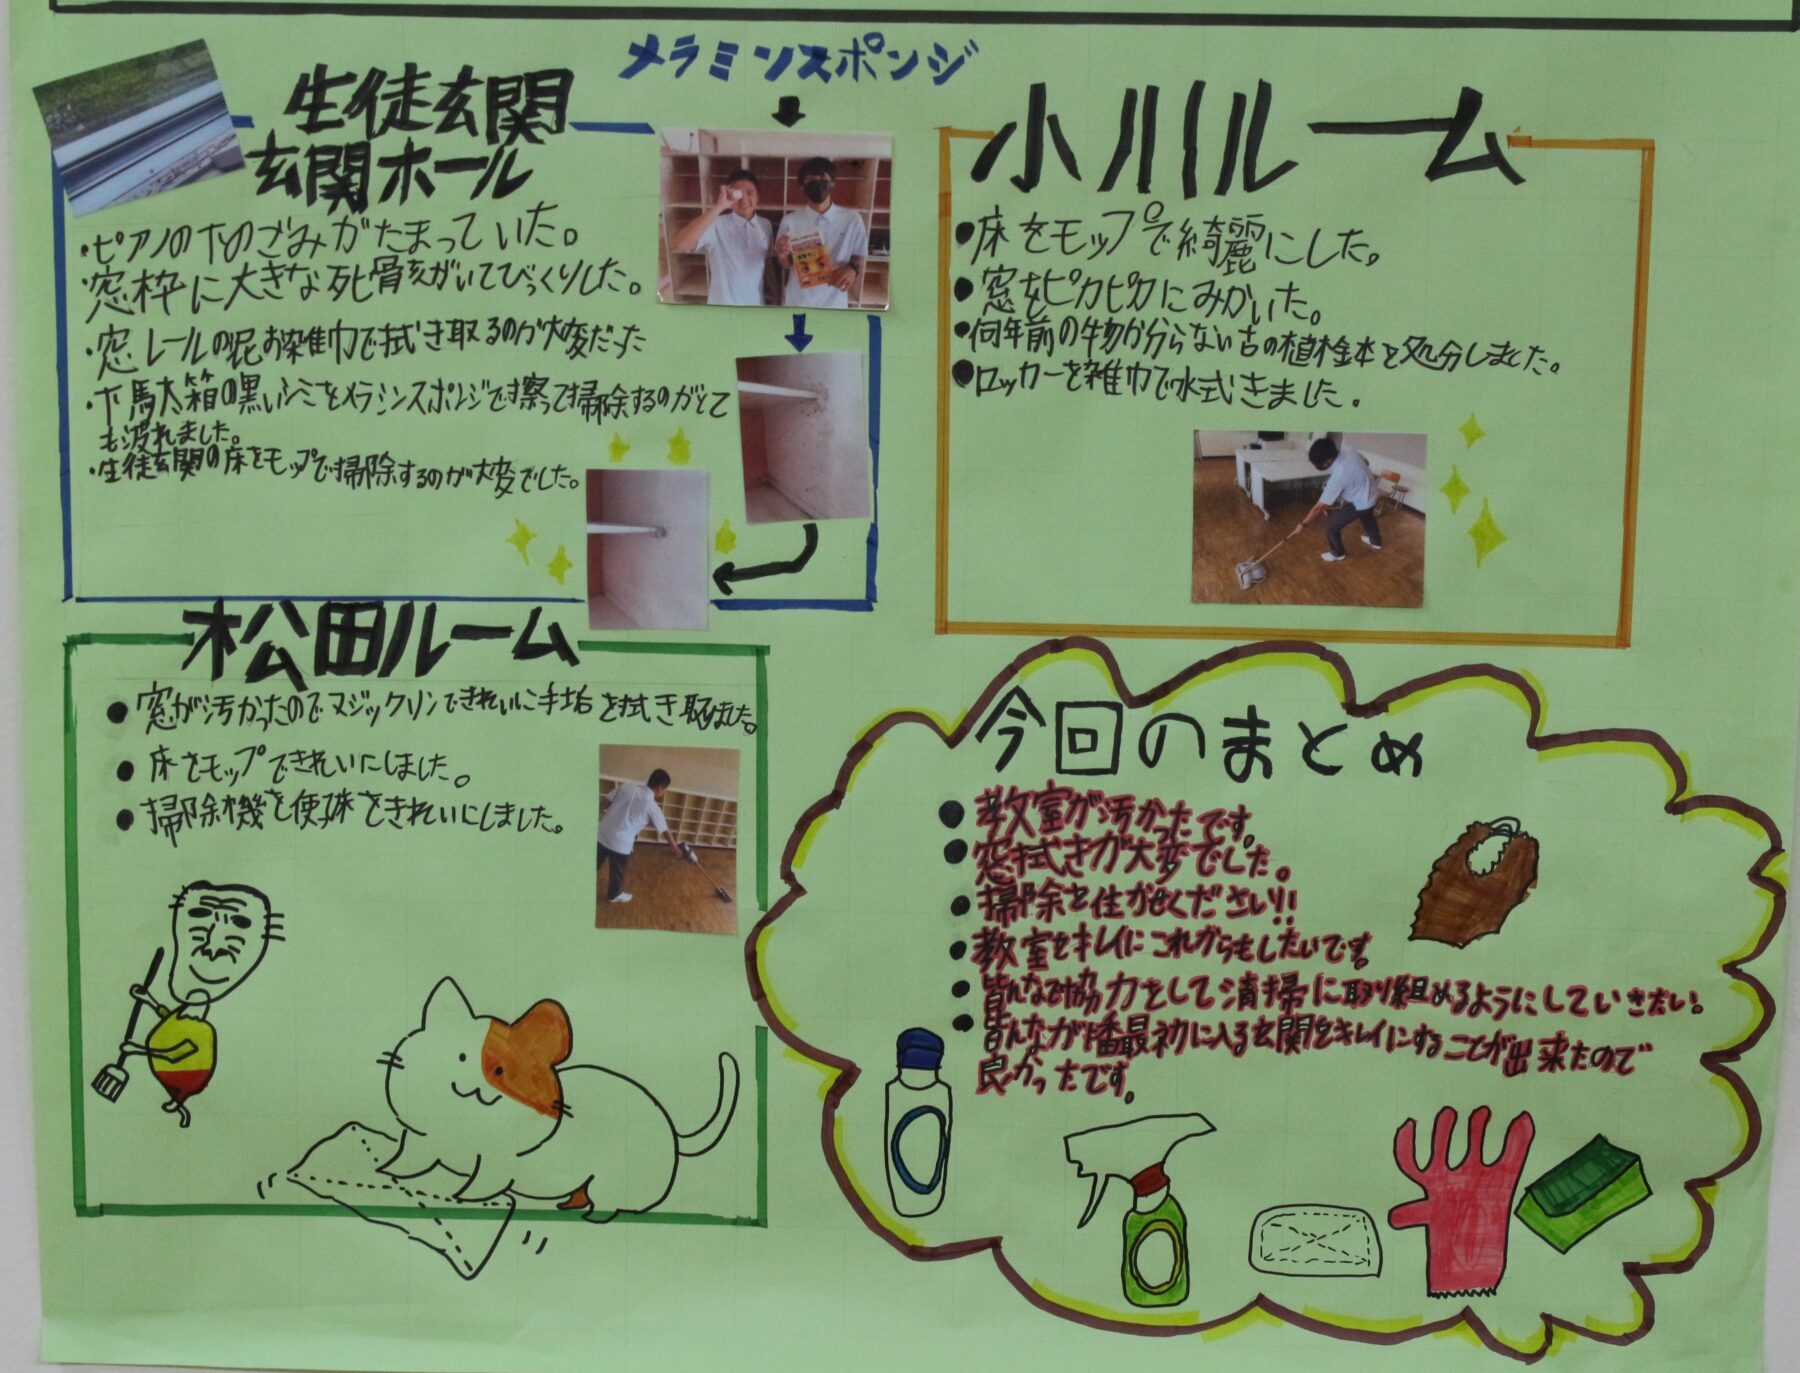 メラミンスポンジ
生徒玄関
玄関ホール
・ピアノの下のごみがたまっていた。
・窓枠に大きな死骸がいてびっくりした。
・窓レールの泥お雑巾で拭き取るのが大変だった
・下駄箱の黒いシミをメラミンスポンジで擦って掃除するのがとて
も疲れました。
・生徒玄関の床をモップで掃除するのが大変でした。
小川ルーム
●床をモップで綺麗にした。
●窓をピカピカにみがいた。
●何年前の物か分らない古の植木を処分しました。
●ロッカーを雑巾で水拭きました。
松田ルーム
●窓が汚かったのでマジックリンできれいに手垢を拭き取りました。
●床をモップできれいにしました。
●掃除機を使床をきれいにしました。
今回のまとめ
●教室が汚かったです。
●窓拭きが大変でした。
●掃除を任かせください!!
●教室をキレイにこれからもしたいです。
●皆んなで協力をして清掃に取り組めるようにしていきたい!
●皆んなが1番最初に入る玄関をキレイにすることが出来たので
良かったです。